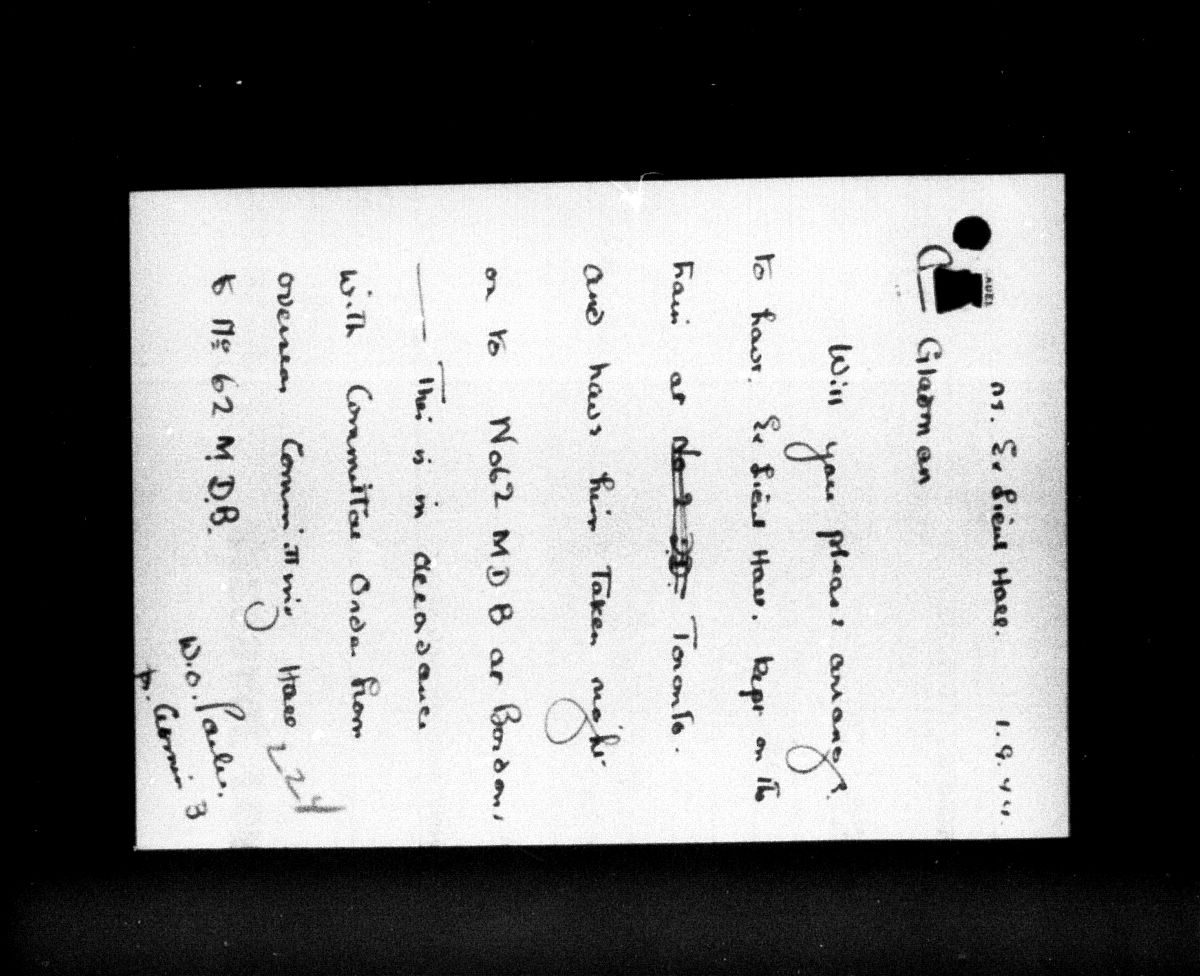 Ex Lieut Hall. 1.9.44.
Gladman
Will you please arrange
to have Ex Lieut Hall. kept on the
train at No 2 D.D. Toronto.
and have him Taken right
on to No 62 M D B at Borden,
— This is in accordance
with Committal Order from
overseas Committing Hall
to No 62 M.D.B.
224
W.O.
Admin 3